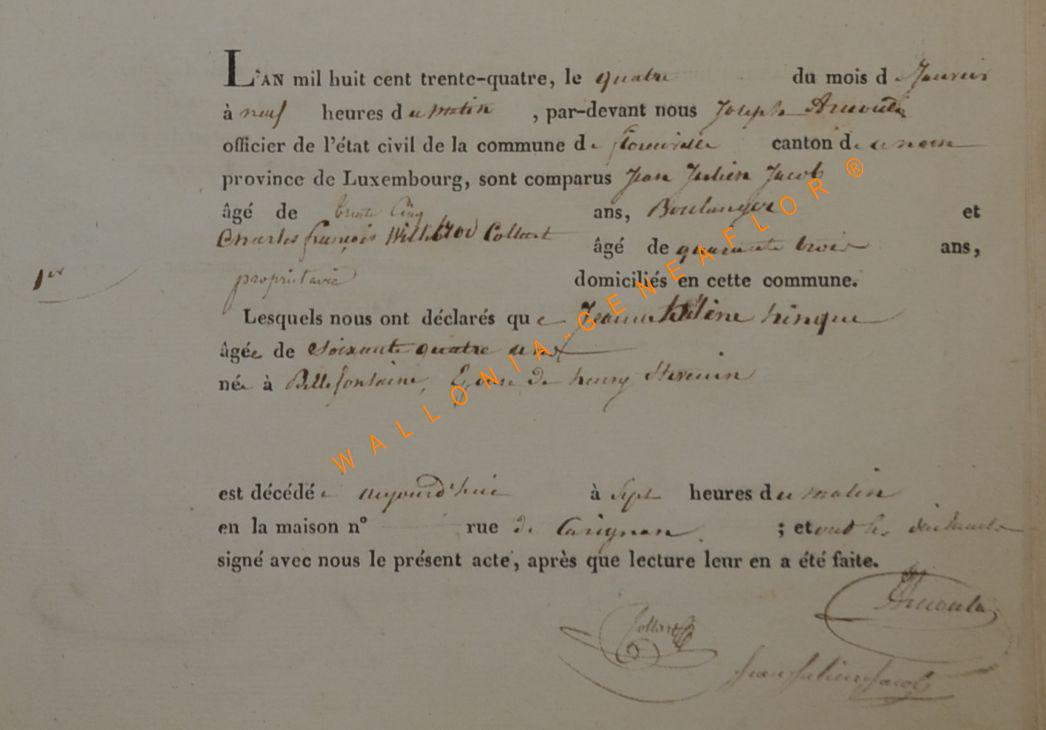 L'AN mil huit cent trente-quatre, le quatre du mois de Janvier
à neuf heures du matin, par-devant nous Joseph Arnould
officier de l'état civil de la commune de florenville canton d
province de Luxembourg, sont comparus Jean Julien Jacob
âgé de trente Cinq ans, Boulanger et
Charles françois Collart âgé de quarante trois ans,
1er
proprietaire domiciliés en cette commune.
Lesquels nous ont déclarés que hinque
âgée de Soixante quatre ans
née à Bellefontaine, Epouse de henry
est décédée aujourd'hui à Sept heures du matin
en la maison n° rue de Carignan ; et ont les déclarants
signé avec nous le présent acte, après que lecture leur en a été faite.
Arnould
Collart
Jean Julien Jacob
WALLONIA-GENEAFLOR ®